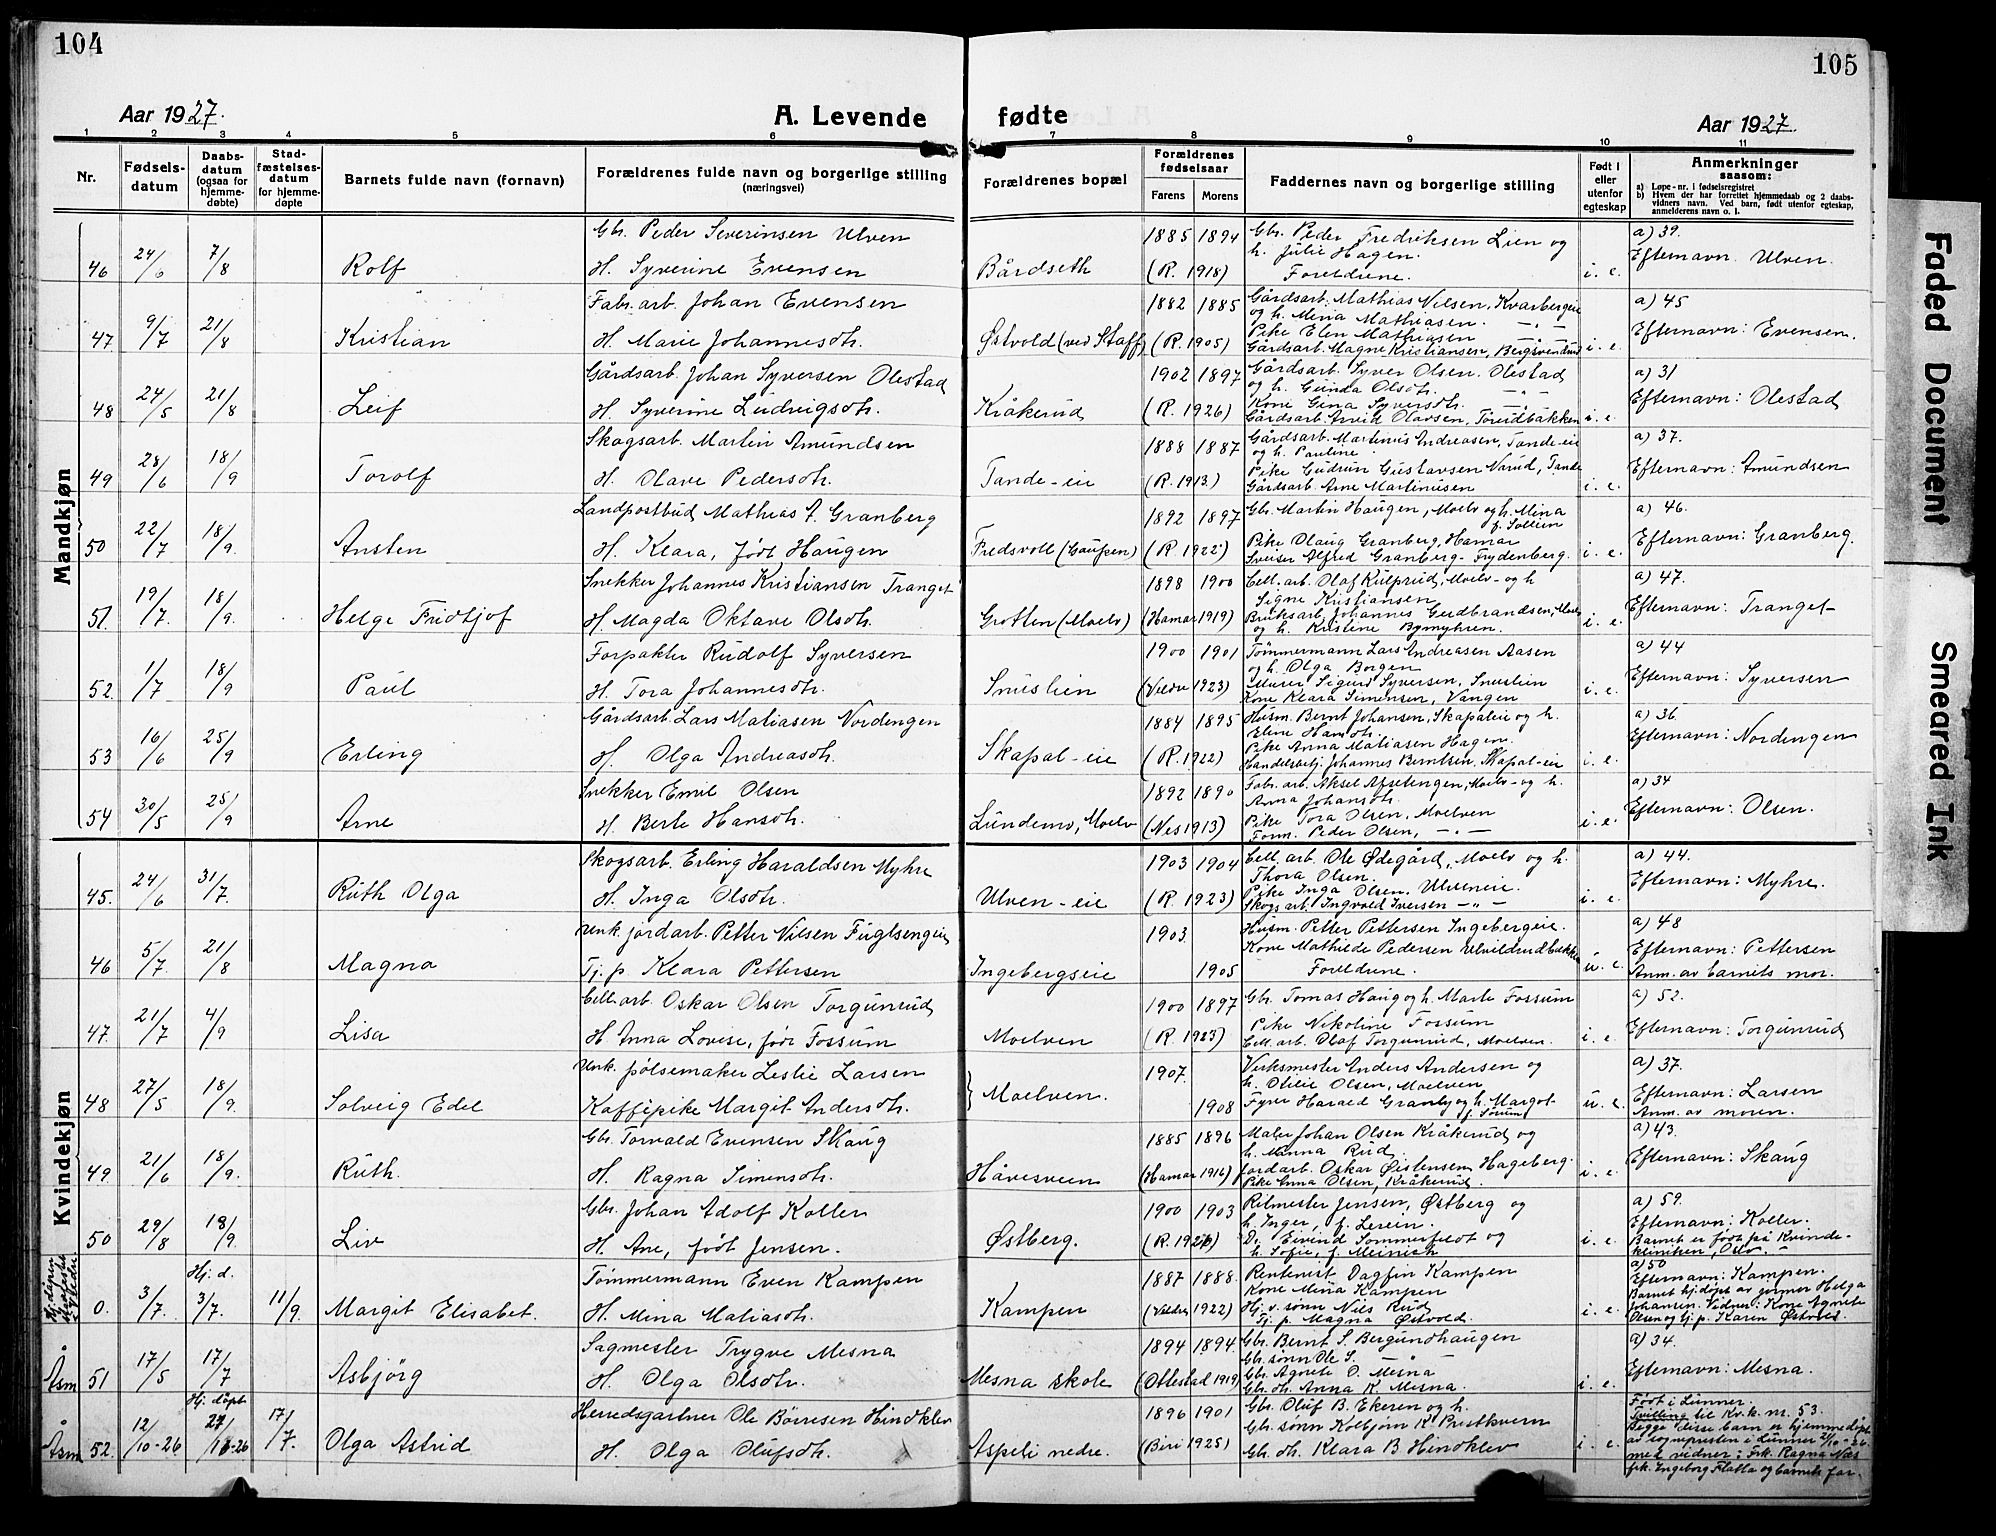 104
105
Aar 1927.
A. Levende fødte
Aar 1927.
1 2 3 4 5 6 7 8 9 10 11
Nr.
Fødsels-datum
Daabs-datum (ogsaa for hjemme-døbte)
Stad-fæstelses-datum for hjemme-døpte
Barnets fulde navn (fornavn)
Forældrenes fulde navn og borgerlige stilling (næringsvei)
Forældrenes bopæl
Forældrenes fødselsaar
Farens Morens
Faddernes navn og borgerlige stilling
Født i eller utenfor egteskap
Anmerkninger saasom:
a) Løpe-nr. i fødselsregistret
b) Hvem der har forrettet hjemmedaab og 2 daabs-vidners navn. Ved barn, født utenfor egteskap, anmelderens navn o. l.
Mandkjøn
46 24/6 7/8 Rolf
Gbr. Peder Severinsen Ulven
H. Syverine Evensen
Bårdseth
1885 1894
(R. 1918)
Gbr. Peder Fredriksen Lien og
h. Julie Hagen.
Foreldrene.
i. e.
a) 39.
Efternavn Ulven.
47 9/7 21/8 Kristian
Fabr. arb. Johan Evensen
H. Marie Johannesdtr.
Østvold (ved Skaff)
1882 1885
(R. 1905)
Gårdsarb. Mathias Nilsen, Kvarbergeie
og h. Mina Mathiasen. - " -
Pike Elen Mathiasen - " -
Gårdsarb. Magne Kristiansen, Bergsvendrud
i. e.
a) 45
Efternavn: Evensen.
48 24/5 21/8 Leif
Gårdsarb. Johan Syversen Olestad
H. Syverine Ludvigsdtr.
Kråkerud
1902 1897
(R. 1926)
Gårdsarb. Syver Olsen. Olestad
og h. Gunda Olsdtr. - " -
Kone Gina Syversdtr.
Gårdsarb. Arvid Olavsen, Torudbakken
i. e.
a) 31
Efternavn: Olestad
49 28/6 18/9 Torolf
Skogsarb. Martin Amundsen
H. Olave Pedersdtr.
Tande-eie
1888 1887
(R. 1913)
Gårdsarb. Martinus Andreasen, Tande-eie
og h. Pauline.
Pike Gudrun Gustavsen Narud, Tande
Gårdsarb. Arne Martinusen
i. e.
a) 37.
Efternavn: Amundsen
50 22/7 18/9. Ansten
Landpostbud Mathias A. Granberg
H. Klara, født Haugen
Fredsvoll (Gaupen)
1892 1897
(R. 1922)
Gbr. Martin Haugen, Moelv og h. Mina
f. Sollien
Pike Olaug Granberg, Hamar
Sveiser Alfred Granberg - Frydenberg.
i. e.
a) 46.
Efternavn: Granberg.
51. 19/7. 18/9. Helge Fridtjof
Snekker Johannes Kristiansen Tranget
H. Magda Oktave Olsdtr.
Grotten (Moelv)
1898 1900
(Hamar 1919)
Cell. arb. Olaf Kulprud, Moelv - og h
Signe Kristiansen
Bruksarb. Johannes Gudbrandsen, Moelv
og h. Kristine Bymyhren.
i. e.
a) 47.
Efternavn: Tranget
52. 1/7 18/9 Paul
Forpakter Rudolf Syversen
H. Tora Johannesdtr.
Snuslien
1900 1901
(Veldre 1923)
Tømmermann Lars Andreasen Aasen
og h. Olga Borgen
Murer Sigurd Syversen, Snuslien
Kone Klara Simensen, Vangen
i. e.
a) 44
Efternavn: Syversen
53 16/6 25/9 Erling
Gårdsarb. Lars Matiasen Nordengen
H. Olga Andreasdtr.
Skapal-eie
1884 1895
(R. 1922)
Husm. Bernt Johansen, Skapaleie og h.
Eline Hansdtr.
Pike Anna Matiasen Hagen.
Handelsbetj. Johannes Berntsen, Skapal-eie
i. e.
a) 36.
Efternavn: Nordengen
54 30/5 25/9 Arne
Snekker Emil Olsen
H. Berte Hansdtr.
Lundemo, Moelv
1892 1890
(Nes 1913)
Fabr. arb. Aksel Afsetengen, Moelv - og h.
Anna Johansdtr.
Pike Tora Olsen, Moelven
Form. Peder Olsen, - " -
i. e.
a) 34
Efternavn: Olsen.
Kvindekjøn
45. 24/6 31/7. Ruth Olga
Skogsarb. Erling Haraldsen Myhre
H. Inga Olsdtr.
Ulven-eie
1903 1904
(R. 1923)
Cell. arb. Ole Ødegård, Moelv og h.
Thora Olsen.
Pike Inga Olsen, Ulveneie.
Skogsarb. Ingvald Iversen - " -
i. e.
a) 44.
Efternavn: Myhre.
46 5/7. 21/8 Magna
Unk. jordarb. Petter Nilsen Fuglsengeie
Tj. p. Klara Pettersen
Ingebergseie
1903.
1905
Husm. Petter Pettersen Ingebergeie.
Kone Mathilde Pedersen Ulvildrudbakken
Foreldrene.
u. e.
a) 48
Efternavn: Pettersen
Anm. av barnets mor.
47. 21/7 4/9 Lisa
Cell. arb. Oskar Olsen Torgunrud
H. Anna Lovise, født Fossum
Moelven
1900 1897
(R. 1923)
Gbr. Tomas Haug og h. Marte Fossum
Pike Nikoline Fossum
Cell. arb. Olaf Torgunrud, Moelven.
i. e.
a) 52.
Efternavn: Torgunrud
48 27/5 18/9. Solveig Edel
Unk. pølsemaker Leslie Larsen
Kaffépike Margit Andersdtr.
Moelven.
1907.
1908
Verksmester Anders Andersen og
h. Otilie Olsen, Moelven
Fyrb. Harald Granby og h. Margot
f. Sørum
u. e.
a) 37.
Efternavn: Larsen
Anm. av moren.
49. 21/6 18/9. Ruth.
Gbr. Torvald Evensen Skaug
H. Ragna Simensdtr.
Håvesveen
1885 1896
(Hamar 1916)
Maler Johan Olsen Kråkerud og
h. Minna Rud.
Jordarb. Oskar Øistensen Hageberg.
Pike Anna Olsen, Kråkerud.
i. e.
a) 43.
Efternavn: Skaug
50 29/8 18/9. Liv
Gbr. Johan Adolf Koller
H. Ane, født Jensen.
Østberg.
1900 1903
(R. 1926)
Ritmester Jensen, Østberg og
h. Inger, f. Lerein.
Dr. Eivind Sommerfeldt og
h. Sofie, f. Meinich
i. e.
a) 59.
Efternavn: Koller.
Barnet er født på Kvinde-
kliniken, Oslo.
0. 3/7. Hj. d. 3/7. 11/9. Margit Elisabet.
Tømmermann Even Kampen
H. Mina Matiasdtr.
Kampen
1887 1888.
(Veldre 1922)
Rentenist Dagfin Kampen
Kone Mina Kampen
Hj. v. sønn Nils Rud
Tj. p. Magna Østvold.
i. e.
a) 50
Efternavn: Kampen.
Barnet hj. døpt av jormor Helga
Johansen. Vidner: Kone Agnete
Olsen og tj. p. Karen Østvold.
Åsm 51 17/5 17/7 Asbjørg
Sagmester Trygve Mesna
H. Olga Olsdtr.
Mesna skole
1894 1894.
(Ottestad 1919)
Gbr. Bernt S Bergundhaugen
Gbr. sønn Ole S. - " -
Gbr. Agnete O. Mesna
Gbr. dtr. Anna K. Mesna.
i. e.
a) 34.
Efternavn: Mesna.
Åsm 52. 12/10-26 Hj. døpt 17/7. Olga Astrid
Herredsgartner Ole Børresen Hindklev
H. Olga Olufsdtr.
Aspeli nedre.
1896 1901
(Biri 1925)
Gbr. Oluf B. Ekeren og h.
Gbr. sønn Kolbjørn K. Prestkvern
Gbr. dtr. Klara B Hindklev
i. e.
Født i Lunner.
Tvilling til Kv.k. nr. 53.
Begge disse barn er hjemmedøpt
av sognepresten i Lunner 27/10-26
med vidner: Frk. Ragna Næs
frk. Ingeborg Flatla og barnets far.
Faded Document
Smeared Ink